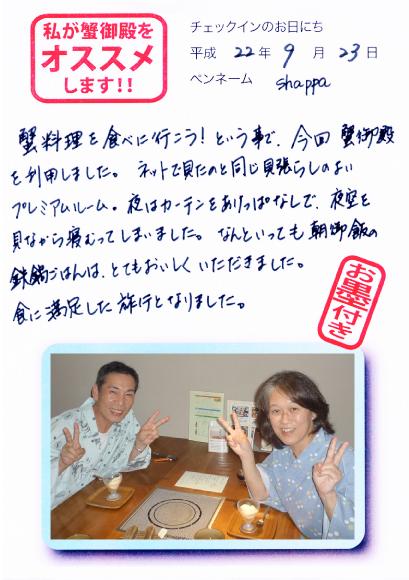 私が蟹御殿を
オススメ
します!!
チェックインのお日にち
平成 22年 9月 23日
ペンネーム shappa
蟹料理を食べに行こう!という事で、今回 蟹御殿
を利用しました。ネットで見たのと同じ見張らしのよい
プレミアムルーム。夜はカーテンをあけっぱなしで、夜空を
見ながら寝むってしまいました。なんといっても朝御飯の
鉄鍋ごはんは、とてもおいしくいただきました。
食に満足した旅行となりました。
お墨付き